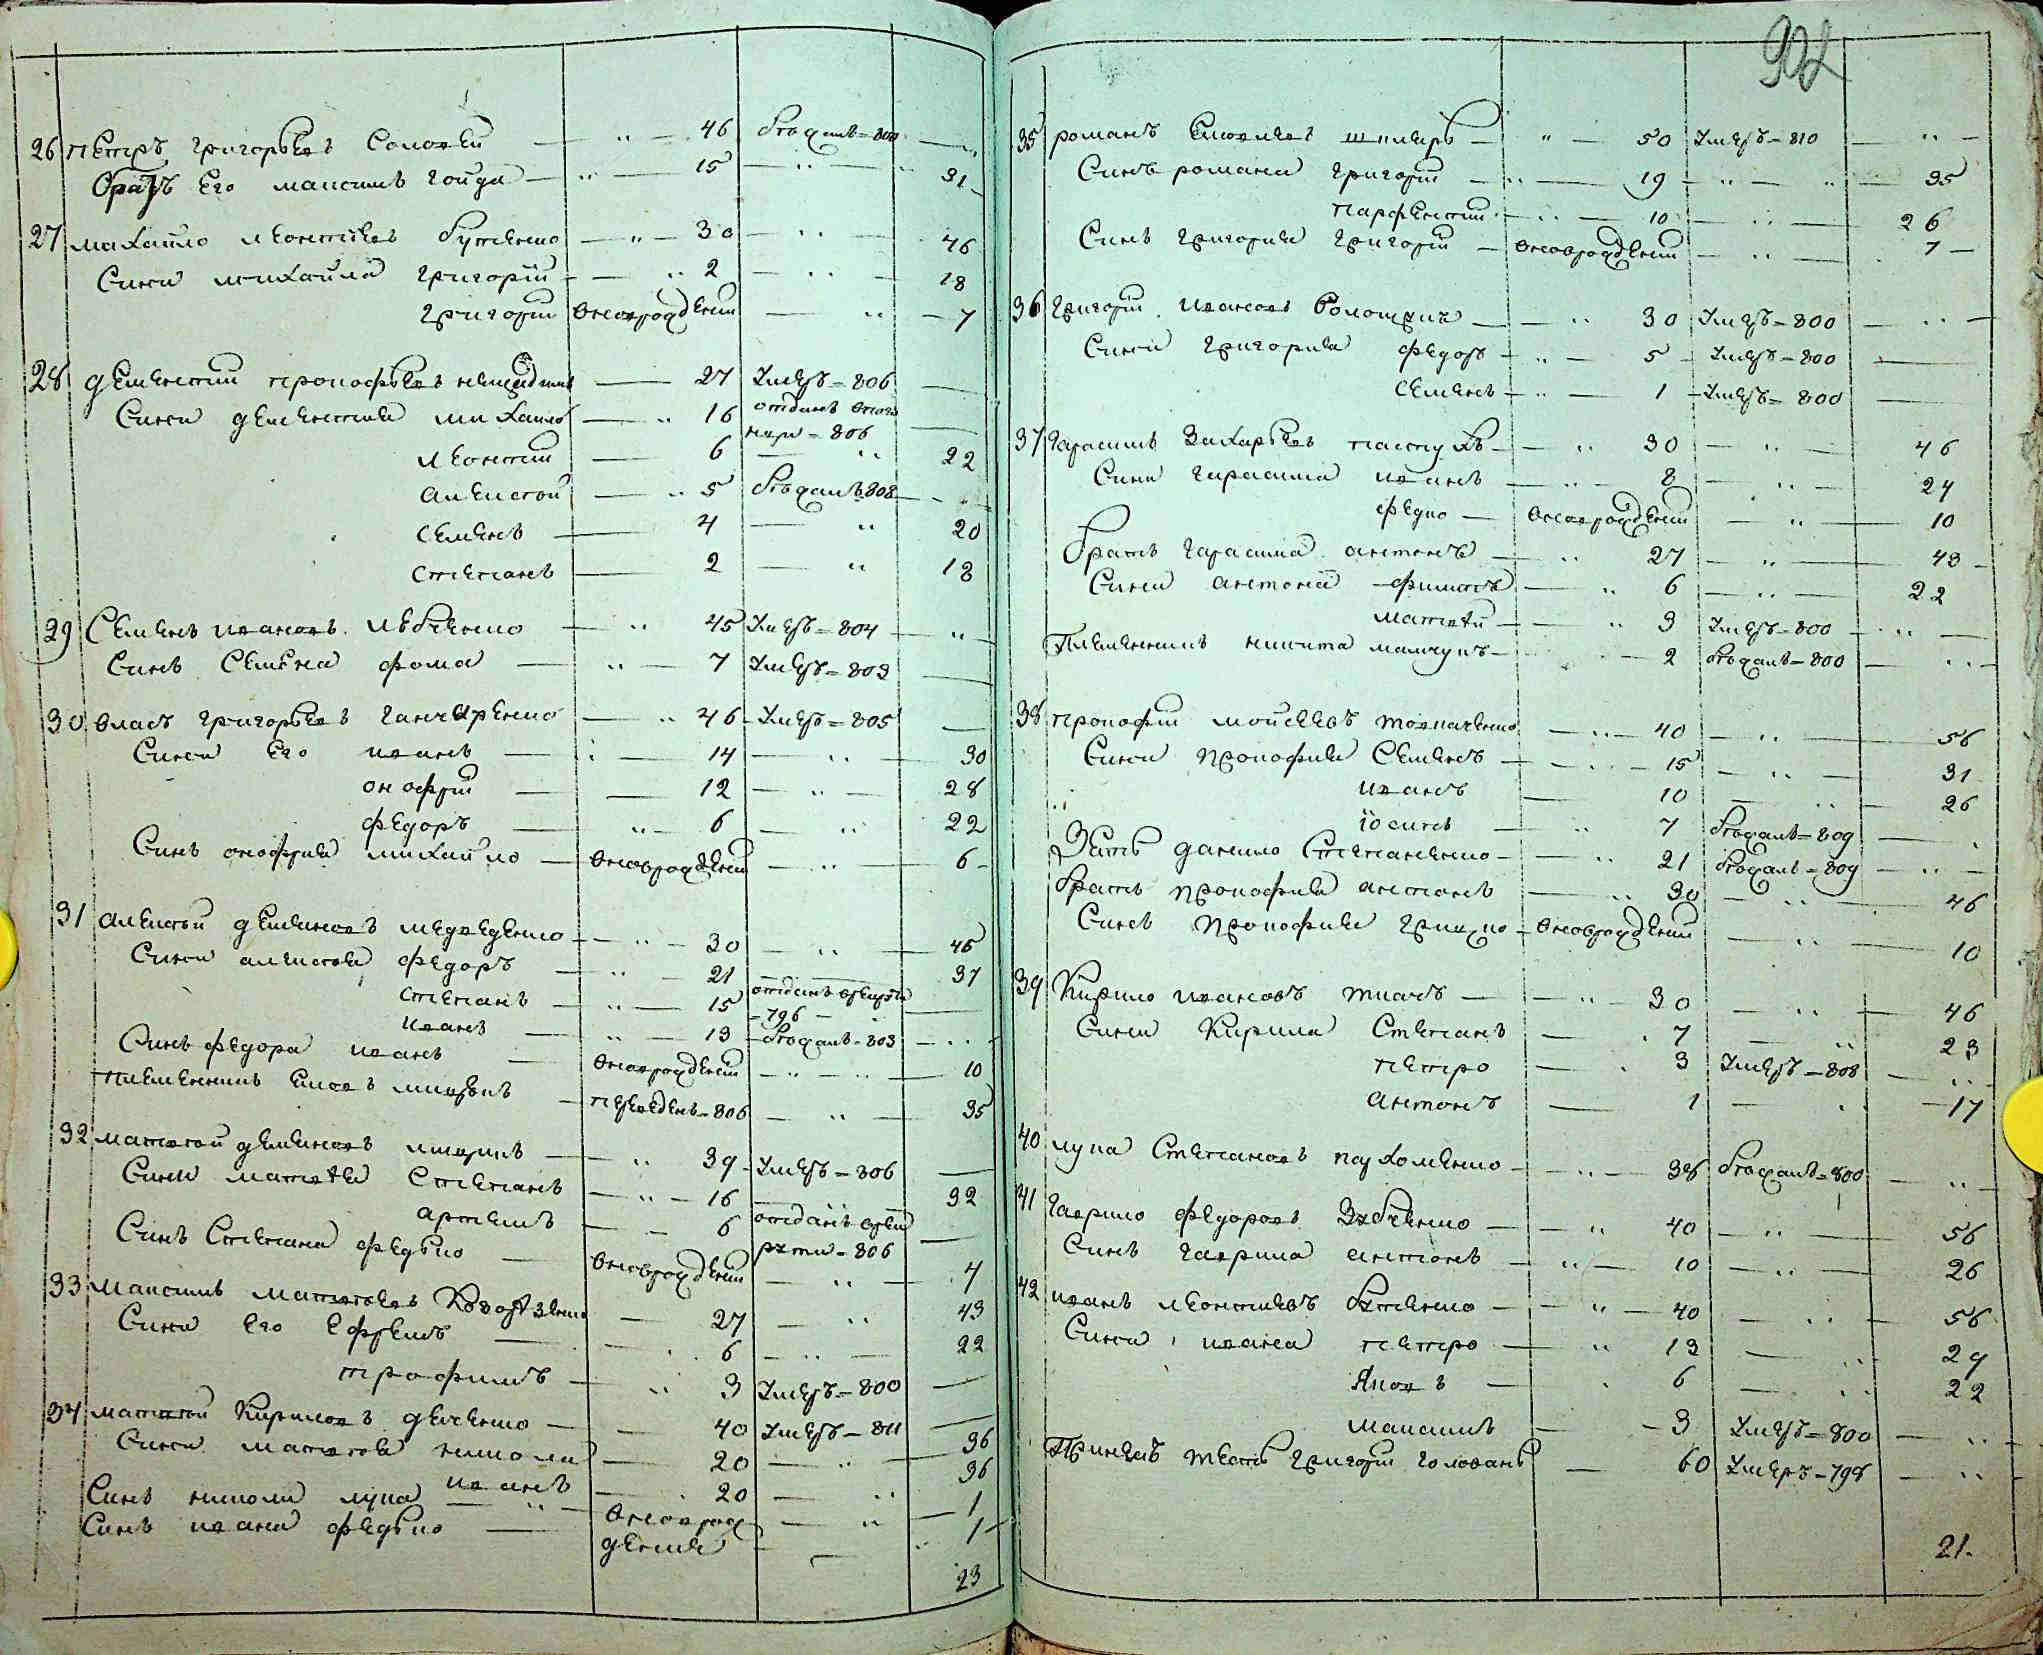 26 Петръ Григорьевъ Соловей — " — 46 бѣжалъ = 800 — "
Братъ Его Максимъ Гойда — " — 15 — " — 31
27 Михайло Леонтіевъ бутенко — " — 30 — " 46
Сини михайла григорій — " 2 — " — 18
григорій вноврожденій — " — 7
28 дементій прокофьевъ — 27 Умеръ = 806 —
Сини дементия михайло — " 16 отданъ —
= 806
леонтій — 6 — " 22
алексѣй — " 5 бѣжалъ 808 —
семенъ — 4 — " 20
степанъ — 2 — " 18
29 Семенъ ивановъ — " 45 Умеръ = 804 — "
Синъ Семена фома — " — 7 Умеръ = 803 —
30 власъ григорьевъ ганчаренко — " 46 Умеръ = 805 —
Сини Его иванъ — 14 — " — 30
онофрій — 12 — " — 28
федоръ — " — 6 — " 22
Синъ онофрия михайло — вновврожденій — " — 6
31 алексѣй дементьевъ медведенко — " — 30 — " — 46
Сини алексѣя федоръ — " — 21 — 37
степанъ — " — 15 отданъ врекруты = 796 —
иванъ — " — 13 бѣжалъ = 803 —
Синъ федора иванъ — вновврожденій — " — 10
племенникъ — переведенъ = 806 — " — 35
32 матвѣй дементьевъ — " 39 Умеръ = 806 —
Сини матвѣя Степанъ — " — 16 — 32
артемъ — 6 отданъ врекруты = 806 —
Синъ Степана федько — вновврожденій — " — 4
33 Максимъ матвѣевъ — 27 — " 43
Сини Его Ефремъ — 6 — " — 22
трофимъ — " 3 Умеръ = 800 —
34 матвѣй Кириловъ — 40 Умеръ = 811 —
Сини матвѣя никола — 20 — " 36
иванъ — 20 — " 36
Синъ николи лука — " — вновврож — " — 1
Синъ ивана федько — дения — 1
23
35 романъ — " — 50 Умеръ = 810 — "
Синъ романа григорій — " — 19 — " — " — 35
парфентій — " — 10 — " — 26
Синъ григория григорій — вновврожденій — " — 7
36 Григорій ивановъ Волошинъ — " 30 Умеръ = 800 — "
Сини григория федоръ — " — 5 Умеръ = 800 —
семенъ — " — 1 Умеръ = 800 —
37 Гарасимъ Захарьевъ пастухъ — " 30 — " — 46
Сини гарасима иванъ — " — 8 — " — 24
федко — вновврожденій — " — 10
братъ гарасима антонъ — " 27 — " — 43
Сини антона филипъ — " 6 — " — 22
матвѣй — " 3 Умеръ = 800 — "
Племенникъ никита — " 2 бѣжалъ = 800 — "
38 прокофій мойсеевъ — " — 40 — " 56
Сини прокофия Семенъ — " — 15 — " — 31
иванъ — 10 — " 26
іосипъ — " 7 бѣжалъ = 809 —
Зять данило Степаненко — " 21 бѣжалъ = 809 — "
братъ прокофия антонъ — " 30 — " 46
Синъ прокофия грицко — вновврожденій — " 10
39 Кирило ивановъ ткачъ — " 30 — " 46
Сини Кирила Степанъ — 7 — " 23
петро — 3 Умеръ = 808 — "
антонъ — 1 — 17
40 лука Степановъ пархоменко — " — 38 бѣжалъ = 800 — "
41 гаврило федоровъ — " 40 — " 56
Синъ гаврила антонъ — " — 10 — " — 26
42 иванъ леонтиевъ бутенко — " — 40 — " — 56
Сини ивана петро — " 13 — " 29
Яковъ — 6 — 22
максимъ — 3 Умеръ = 800 — "
тесть григорій голованъ — 60 Умеръ = 798 — "
21.